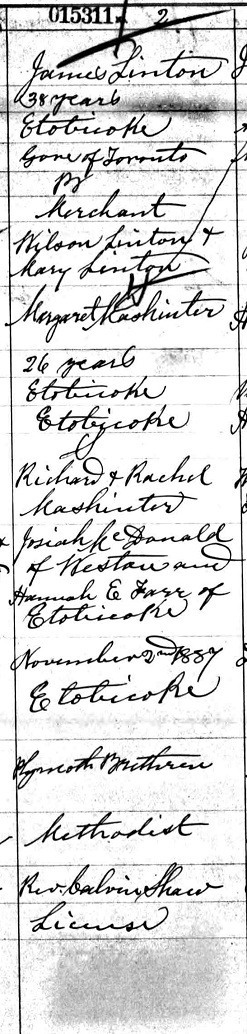 015311
2
James Linton
38 years
Etobicoke
Gore of Toronto
B
Merchant
Wilson Linton &
Mary Linton
Margaret Mashinter
26 years
Etobicoke
Etobicoke
S
Richard & Rachel
Mashinter
Josiah McDonald
of Weston and
Hannah E Farr of
Etobicoke
November 2nd 1887
Etobicoke
Plymoth Brethren
Methodist
Rev. Calvin Shaw
License